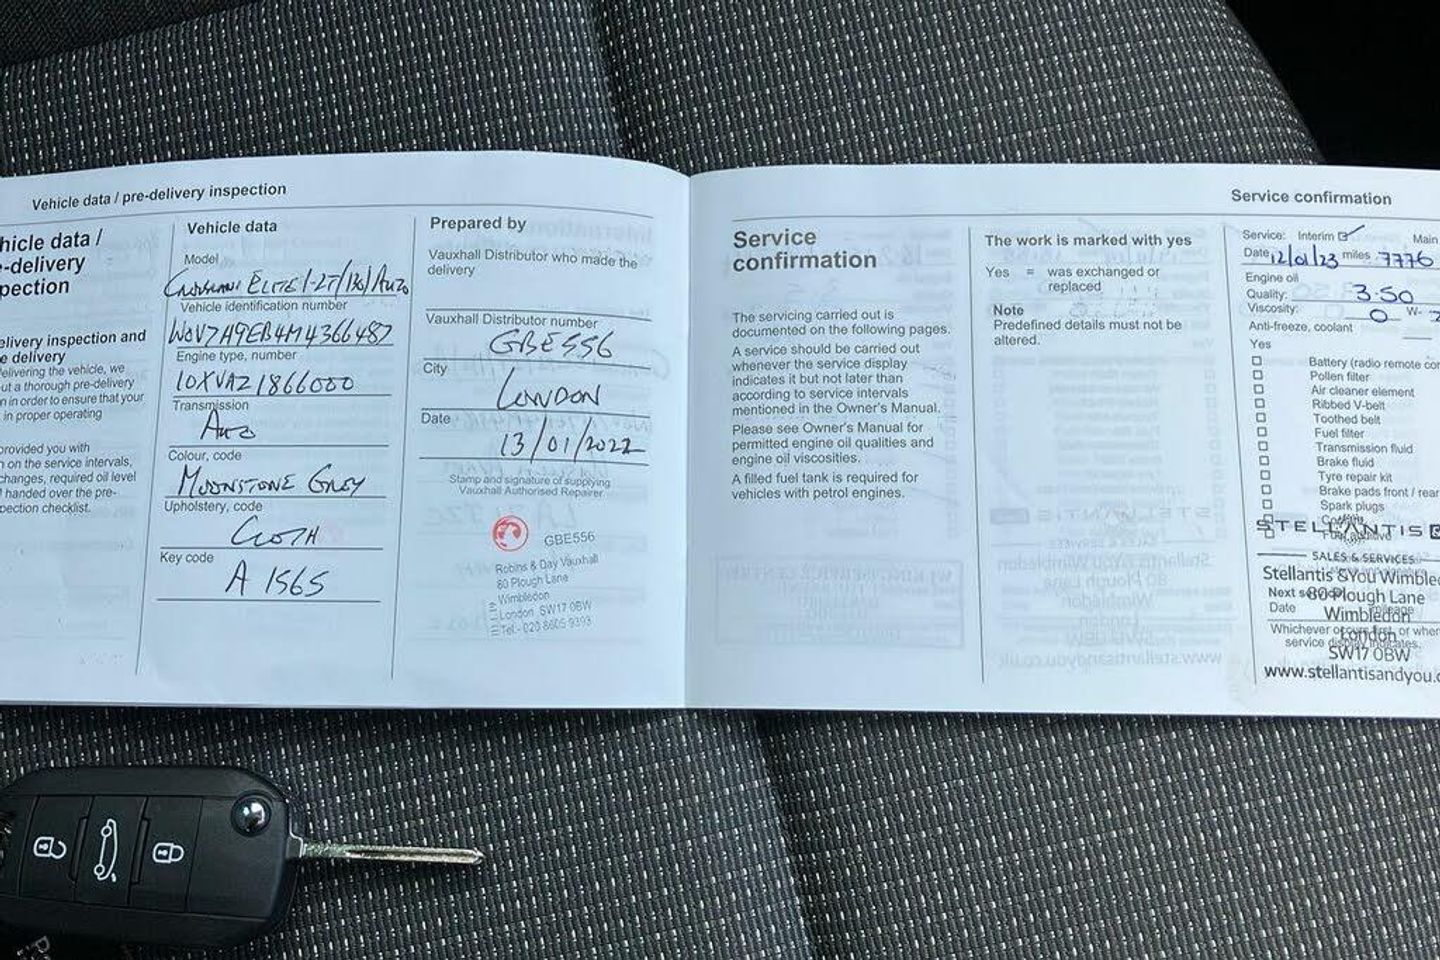 Vehicle data / pre-delivery inspection
hicle data /
e-delivery
pection
elivery inspection and
e delivery
elivering the vehicle, we
ut a thorough pre-delivery
n in order to ensure that your
in proper operating
provided you with
n on the service intervals,
changes, required oil level
handed over the pre-
pection checklist.
Vehicle data
Model
CROSSLAND ELITE 1-2T/130/AUTO
Vehicle identification number
W0V7H9EB4M4366487
Engine type, number
10XVAZ1866000
Transmission
AUTO
Colour, code
MOONSTONE GREY
Upholstery, code
CLOTH
Key code
A 1565
Prepared by
Vauxhall Distributor who made the
delivery
Vauxhall Distributor number
GBE556
City
LONDON
Date
13/01/2022
Stamp and signature of supplying
Vauxhall Authorised Repairer
GBE556
Robins & Day Vauxhall
80 Plough Lane
Wimbledon
London SW17 0BW
Tel:- 020 8605 9393
Service confirmation
Service
confirmation
The servicing carried out is
documented on the following pages.
A service should be carried out
whenever the service display
indicates it but not later than
according to service intervals
mentioned in the Owner's Manual.
Please see Owner's Manual for
permitted engine oil qualities and
engine oil viscosities.
A filled fuel tank is required for
vehicles with petrol engines.
The work is marked with yes
Yes = was exchanged or
replaced
Note
Predefined details must not be
altered.
Service: Interim Main
Date 12/01/23 miles 7776
Engine oil
Quality: 3.50
Viscosity: 0 W-
Anti-freeze, coolant
Yes
Battery (radio remote con
Pollen filter
Air cleaner element
Ribbed V-belt
Toothed belt
Fuel filter
Transmission fluid
Brake fluid
Tyre repair kit
Brake pads front / rear
Spark plugs
STELLANTIS &
SALES & SERVICES
Stellantis &You Wimble
80 Plough Lane
Wimbledon
London
SW17 0BW
www.stellantisandyou.c
Next service:
Date mileage
Whichever occurs first, or when
service display indicates.